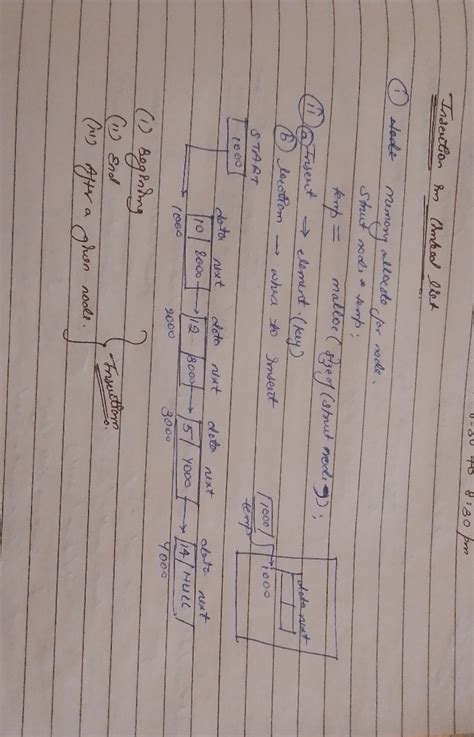 8:30 pm
Insertion in linked list
(i) Node memory allocate for node.
struct node * temp;
temp = malloc(sizeof(struct node));
(ii) (a) Insert → element. (key)
(b) location → where to insert
data next
1000
1000
temp
START
1000
data next data next data next data next
10 2000 12 3000 5 4000 14 NULL
1000 2000 3000 4000
(i) Begining
(ii) End
(iii) After a given node.
Insertion.